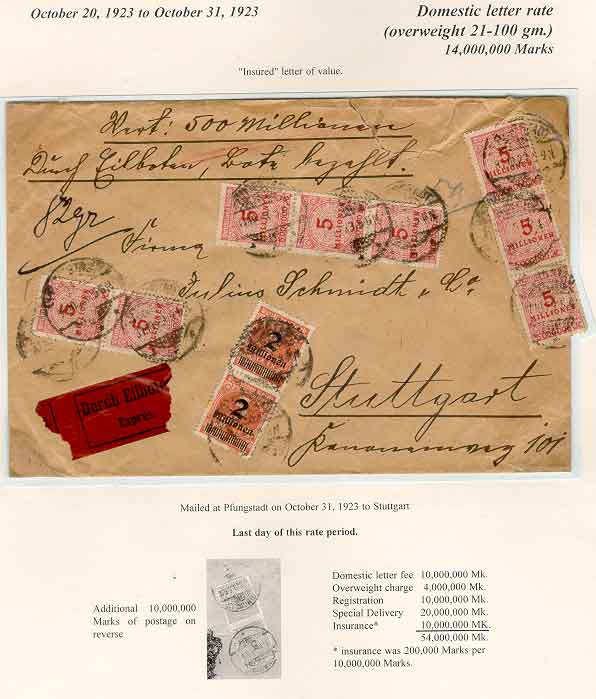 October 20, 1923 to October 31, 1923
Domestic letter rate
(overweight 21-100 gm.)
14,000,000 Marks
"Insured" letter of value.
Wert: 500 Millionen
Durch Eilboten, Bote bezahlt.
82gr
54
Firma
Julius Schmidt & Co
Stuttgart
Kanonenweg 101
5
MILLIONEN
5
MILLIONEN
5
MILLIONEN
5
MILLIONEN
5
MILLIONEN
5
MILLIONEN
5
MILLIONEN
5
MILLIONEN
2
Millionen
2
Millionen
Durch Eilboten
Expres.
Mailed at Pfungstadt on October 31, 1923 to Stuttgart
Last day of this rate period.
Additional 10,000,000
Marks of postage on
reverse
Domestic letter fee 10,000,000 Mk.
Overweight charge 4,000,000 Mk.
Registration 10,000,000 Mk.
Special Delivery 20,000,000 Mk.
Insurance* 10,000,000 MK.
54,000,000 Mk.
* insurance was 200,000 Marks per
10,000,000 Marks.